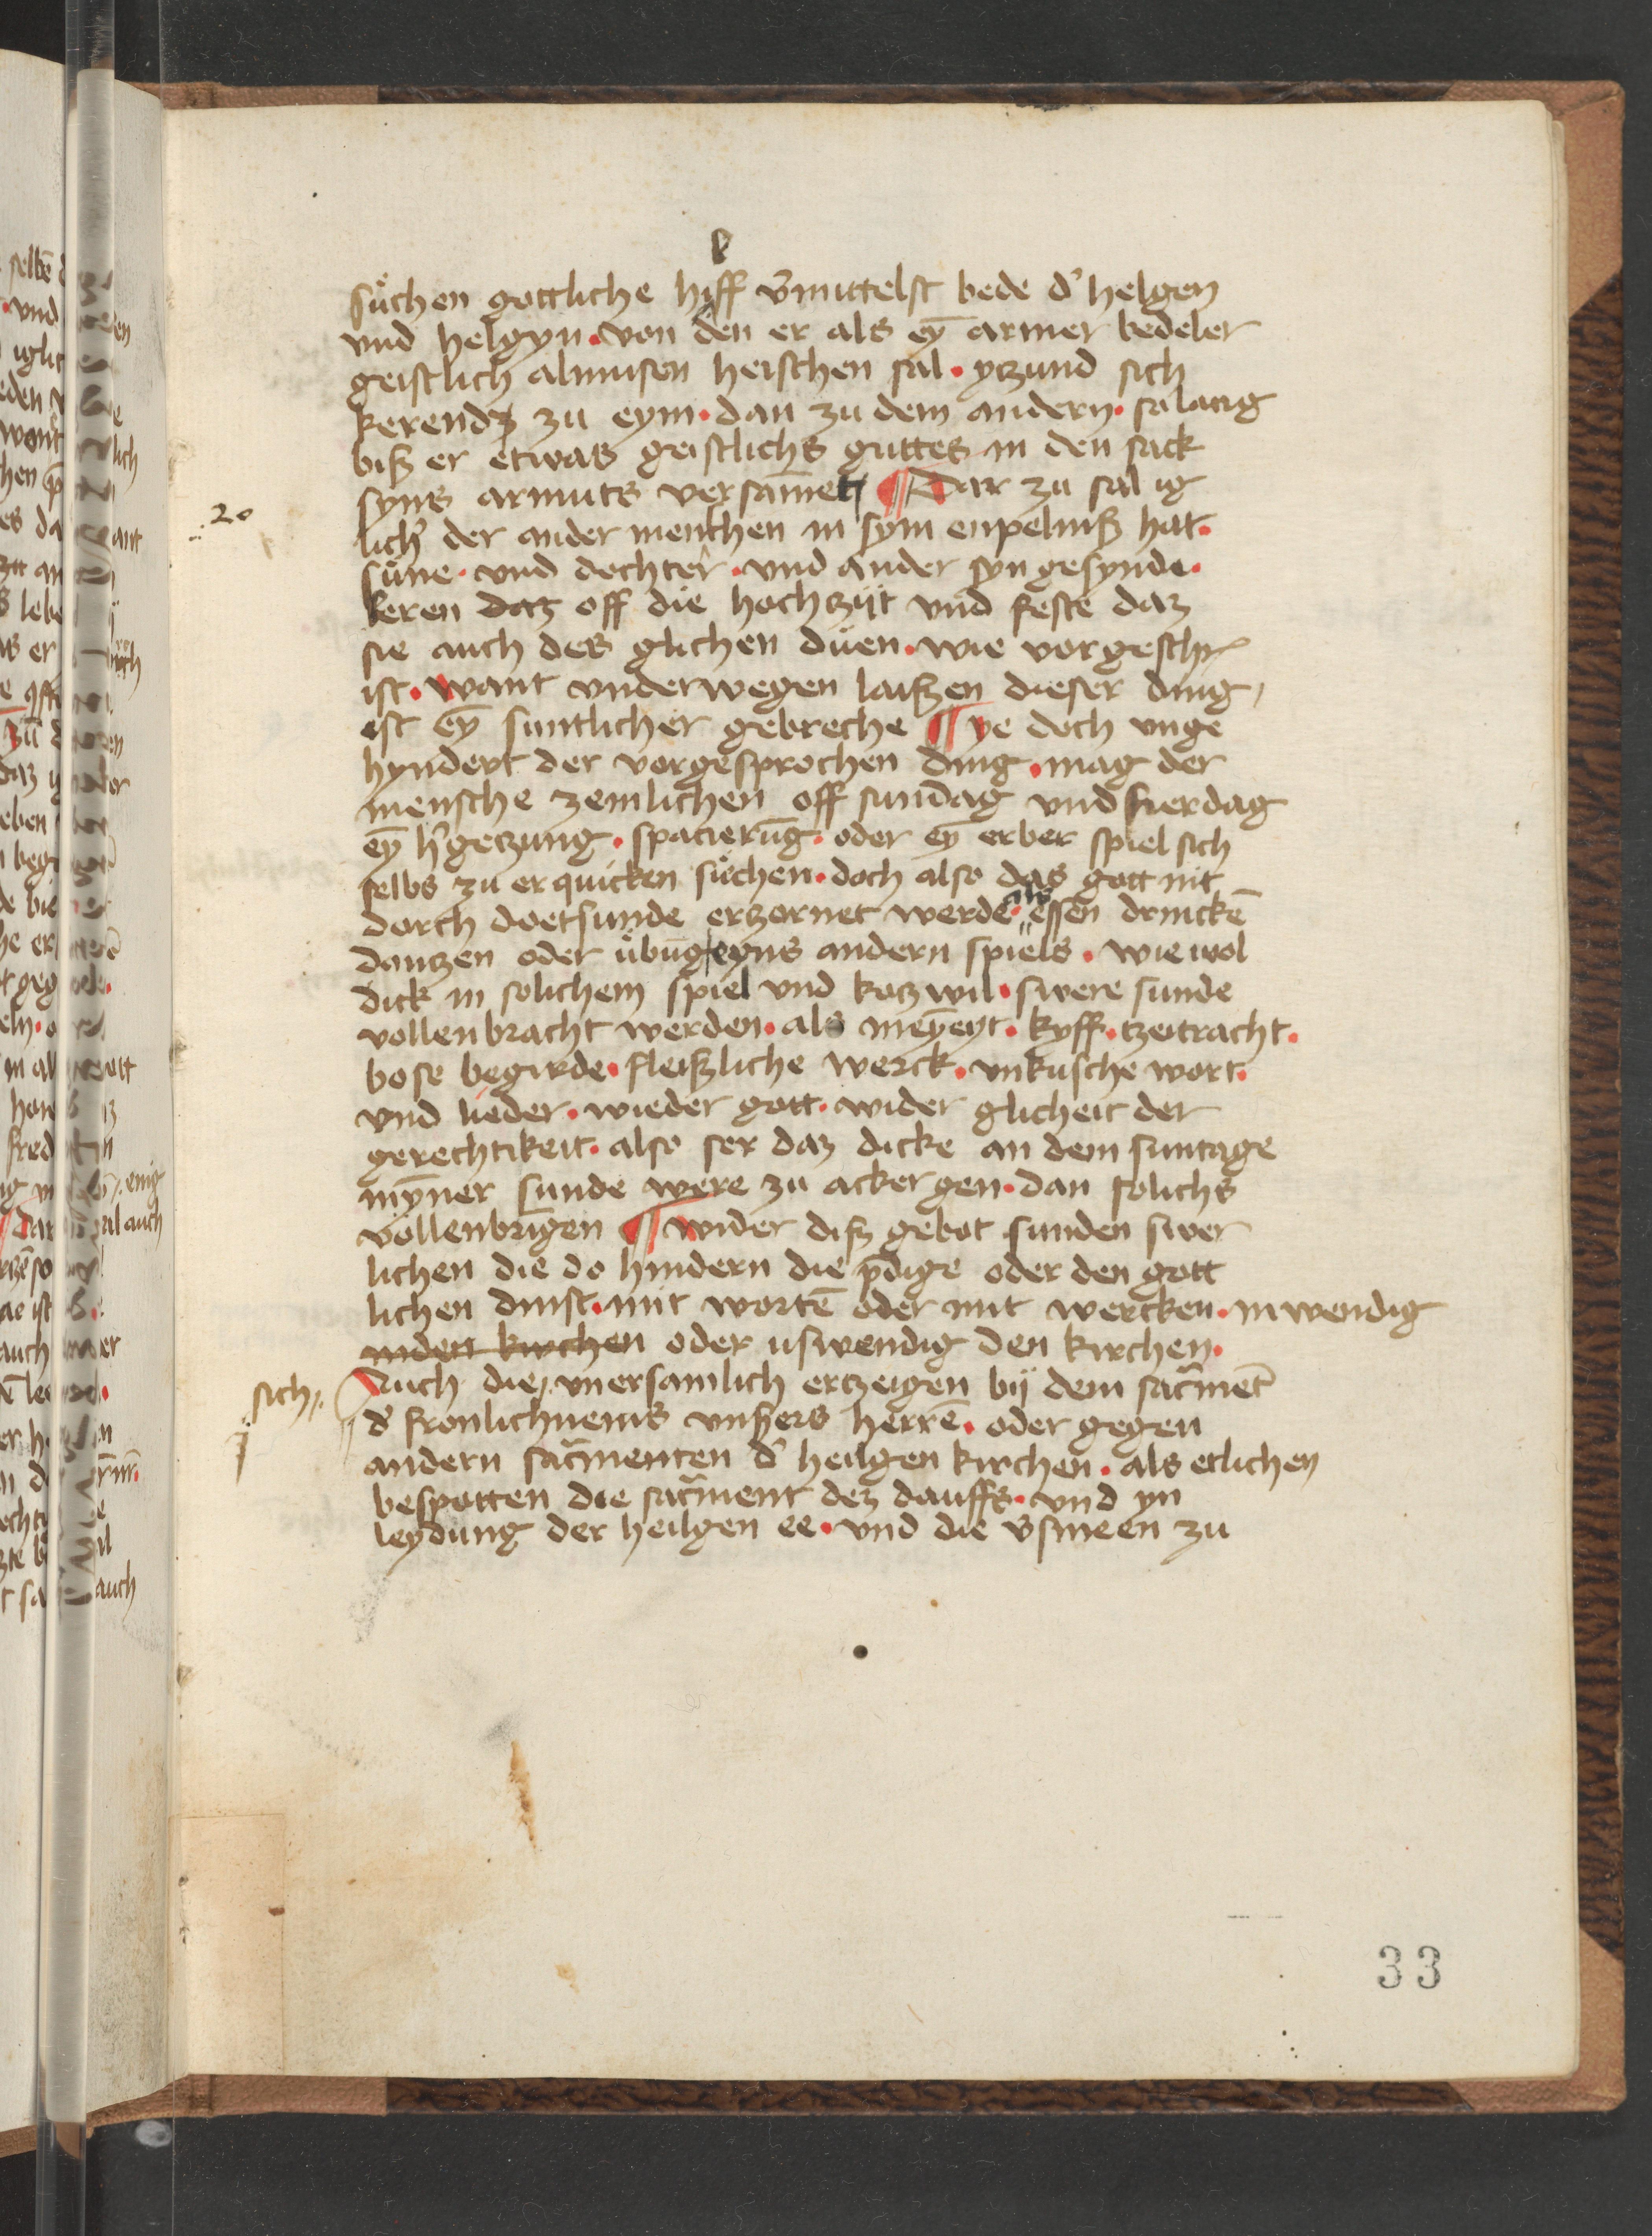 suͦchen gottliche hilff v̉mittelst bede d̉ helgen
vnd helgyn · von den er als ey̅ armer bedeler
geistlich almusen heischen sal · yzund sich
kerendz zu eym · dan zu dem andern · sa lang
biß er etwas geistlichs guttes in den sack
syns armuts versam̅et ¶ Dar zu sal ig
20
lich̉ der ander menschen in sym enpelniß hat ·
suͦne · vnd dochter · vnd ander syn gesynde ·
leren daz off die hochzijt vnd feste daz
sie auch des glichen duͤen · wie vorgeschr
ist · want vnderwegen laißen dieser ding /
ist ey̅ suntlicher gebreche ¶ ye doch vnge
hyndert der vorgesprochen ding · mag der
mensche zemlichen off sundag vnd fierdag
ey̅ h̉getzung · spacieru̅g · oder ey̅ erber spiel sich
selbs zu erquicken suͦchen · doch also das gott nit
dorch doetsunde erzornet werde · als essen drincke̅
dantzen oder uͦbu̅g eyns andern spiels · wie wol
dick in solichem spiel vnd kotzwil · swere sunde
vollenbracht werden · als meyneyt · kyff · tzeitracht ·
bose begirde · fleißliche werck · vnkusche wort ·
vnd lieder · wieder gott · wider glicheit der
gerechtikeit · also ser daz dicke an dem suntage
my̅ner sunde were zu acker gen · dan solichs
vollenbrigen ¶ wider diß gebot sunden swer
lichen die do hindern die p̅dige oder den gott
lichen dinst · mit worte̅ oder mit wercken · inwendig
inden kirchen oder uswendig den kirchen ·
sich //
Auch die // vnersamlich ertzeigen bij dem sac̅met̅
d̉ fronlichnems vnßers herre̅ · oder gegen
andern sac̅menten d̉ heilgen kirchen · als etlichen
bespotten die sac̅ment dez dauffs · vnd yn
leydung der heilgen ee · vnd die v̉smeen zu
33